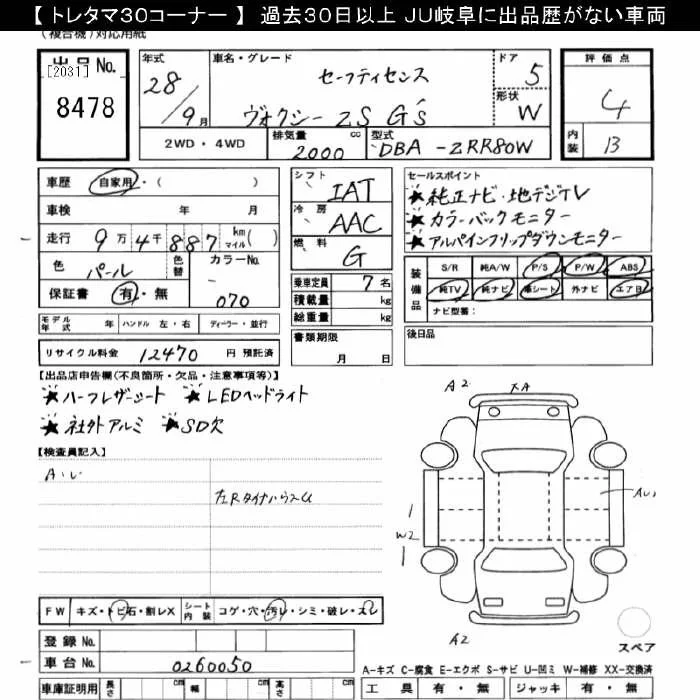 【 トレタマ30コーナー 】 過去30日以上 JU岐阜に出品歴がない車両
(複合機)対応用紙
出品No.
[2031]
8478
年式
28/9月
車名・グレード
セーフティセンス
ヴォクシー ZS G's
ドア
5
形状
W
評価点
4
内装
B
2WD・4WD
排気量
2000
cc
型式
DBA -ZRR80W
車歴
自家用・( )
車検 年 月
走行 9万4千887 km マイル( )
色
パール
色替
カラーNo.
070
保証書 有・無
シフト
IAT
冷房
AAC
燃料
G
乗車定員 7名
積載量 kg
総重量 kg
書類期限
月 日
セールスポイント
★純正ナビ・地デジTV
★カラーバックモニター
★アルパインフリップダウンモニター
装備品
S/R 純A/W P/S P/W ABS
純TV 純ナビ 革シート 外ナビ エア日
ナビ型番:
後日品
モデル年式 年 ハンドル 左・右 ディーラー・並行
リサイクル料金 12470 円 預託済
【出品店申告欄(不良箇所・欠品・注意事項等)】
★ハーフレザーシート ★LEDヘッドライト
★社外アルミ ★SD欠
【検査員記入】
A・U
左Rタイヤハウス凹
A2
XA
1
W2
1
AU1
A2
スペア
FW キズ・トビ石・割レX シート内装 コゲ・穴・汚レ・シミ・破レ・スレ
登録No.
車台No. 0260050
車庫証明用 長さ cm 幅 cm 高さ cm
A-キズ C-腐食 E-エクボ S-サビ U-凹ミ W-補修 XX-交換済
工具 有・無 ジャッキ 有・無